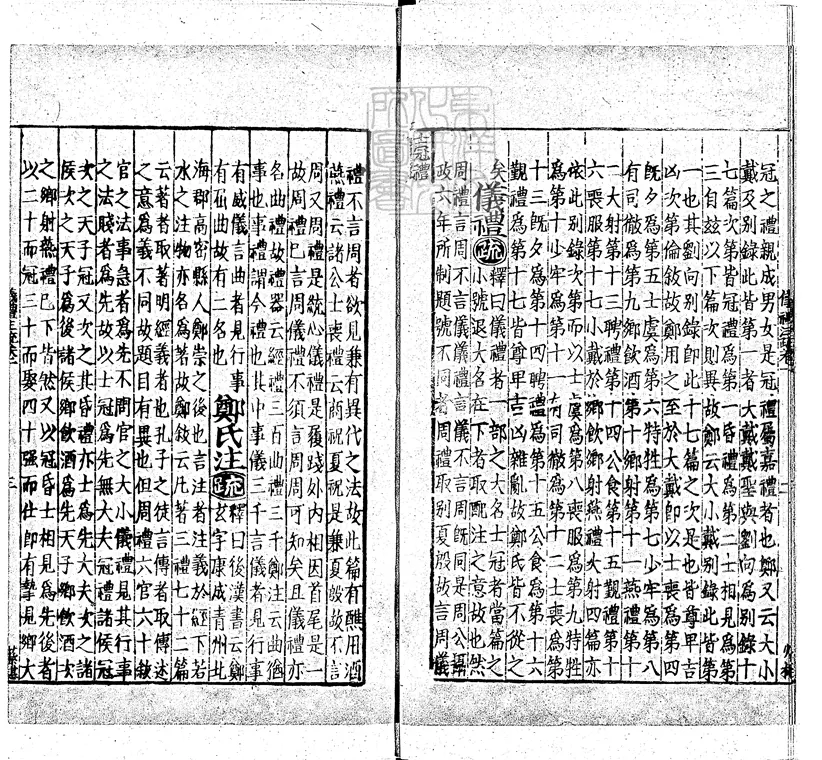 冠之禮親成男女是冠禮屬嘉禮者也鄭又云大小
戴及別錄此皆第一者大戴戴聖與劉向爲別錄十
七篇次第皆冠禮爲第一昏禮爲第二士相見爲第
三自兹以下篇次則異故鄭云大小戴別錄此皆第
一也其劉向別錄卽此十七篇之次是也皆尊卑吉
凶次第倫敘故鄭用之至於大戴卽以士喪爲第四
旣夕爲第五士虞爲第六特牲爲第七少牢爲第八
有司徹爲第九鄉飲酒第十鄉射第十一燕禮第十
二大射第十三聘禮第十四公食第十五覲禮第十
六喪服第十七小戴於鄉飲鄉射燕禮大射四篇亦
依此別錄次第而以士虞爲第八喪服爲第九特牲
爲第十少牢爲第十一有司徹爲第十二士喪爲第
十三旣夕爲第十四聘禮爲第十五公食爲第十六
覲禮爲第十七皆尊卑吉凶雜亂故鄭氏皆不從之
矣
儀禮
疏
釋曰儀禮者一部之大名士冠者當篇之
小號退大名在下者取配注之意故也然
周禮言周不言儀儀禮言儀不言周旣同是周公攝
政六年所制題號不同者周禮取別夏殷故言周儀
士冠禮
禮不言周者欲見兼有異代之法故此篇有醮用酒
燕禮云諸公士喪禮云商祝夏祝是兼夏殷故不言
周又周禮是統心儀禮是履踐外內相因首尾是一
故周禮已言周儀禮不須言周周可知矣且儀禮亦
名曲禮故禮器云經禮三百曲禮三千鄭注云曲猶
事也事禮謂今禮也其中事儀三千言儀者見行事
有威儀言曲者見行事有屈曲故有二名也
鄭氏注
疏
釋曰後漢書云鄭玄字康成青州北
海郡高密縣人鄭崇之後也言注者注義於經下若
水之注物亦名爲著故鄭敘云凡著三禮七十二篇
云著者取著明經義者也孔子之徒言傳者取傳述
之意爲義不同故題目有異也但周禮六官六十敘
官之法事急者爲先不問官之大小儀禮見其行事
之法賤者爲先故以士冠爲先無大夫冠禮諸侯冠
次之天子冠又次之其昏禮亦士爲先大夫次之諸
侯次之天子爲後諸侯鄉飲酒爲先天子鄉飲酒次
之鄉射燕禮已下皆然又以冠昏士相見爲先後者
以二十而冠三十而娶四十強而仕卽有摯見鄉大